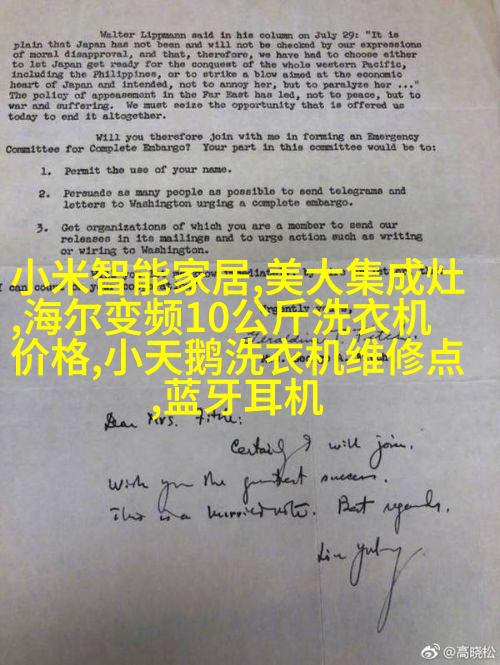 Walter Lippmann said in his column on July 29: "It is
plain that Japan has not been and will not be checked by our expressions
of moral disapproval, and that, therefore, we have had to choose either
to let Japan get ready for the conquest of the whole western Pacific,
including the Philippines, or to strike a blow aimed at the economic
heart of Japan and intended, not to annoy her, but to paralyze her ..."
The policy of appeasement in the Far East has led, not to peace, but to
war and suffering. We must seize the opportunity that is offered us
today to end it altogether.
Will you therefore join with me in forming an Emergency
Committee for Complete Embargo? Your part in this committee would be to:
1. Permit the use of your name.
2. Persuade as many people as possible to send telegrams and
letters to Washington urging a complete embargo.
3. Get organizations of which you are a member to send our
releases in its mailings and to urge action such as writing
or wiring to Washington.
小米智能家居,美大集成灶
,海尔变频10公斤洗衣机
价格,小天鹅洗衣机维修点
,蓝牙耳机
Dear Mrs. Fitch:
Certainly I will join.
Wish you the greatest success.
This is a hurried note. Best regards.
Lin Yutang
@高晓松